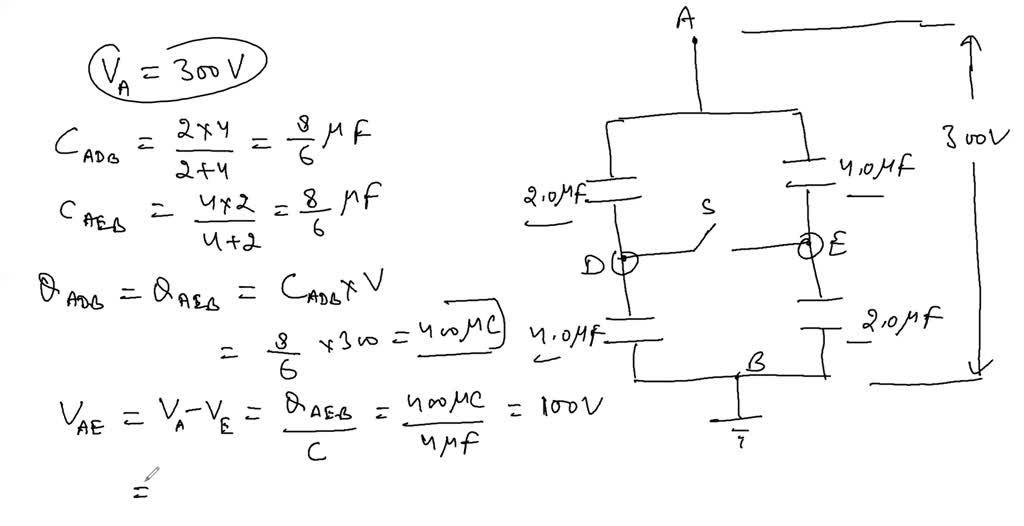 V_A = 300V
C_ADB = 2×4/2+4 = 8/6 μF
C_AEB = 4×2/4+2 = 8/6 μF
Q_ADB = Q_AEB = C_ADB × V
= 8/6 × 300 = 400μC
V_AE = V_A - V_E = Q_AEB/C = 400μC/4μF = 100V
=
A
300V
2.0μF
4.0μF
S
D
E
4.0μF
2.0μF
B